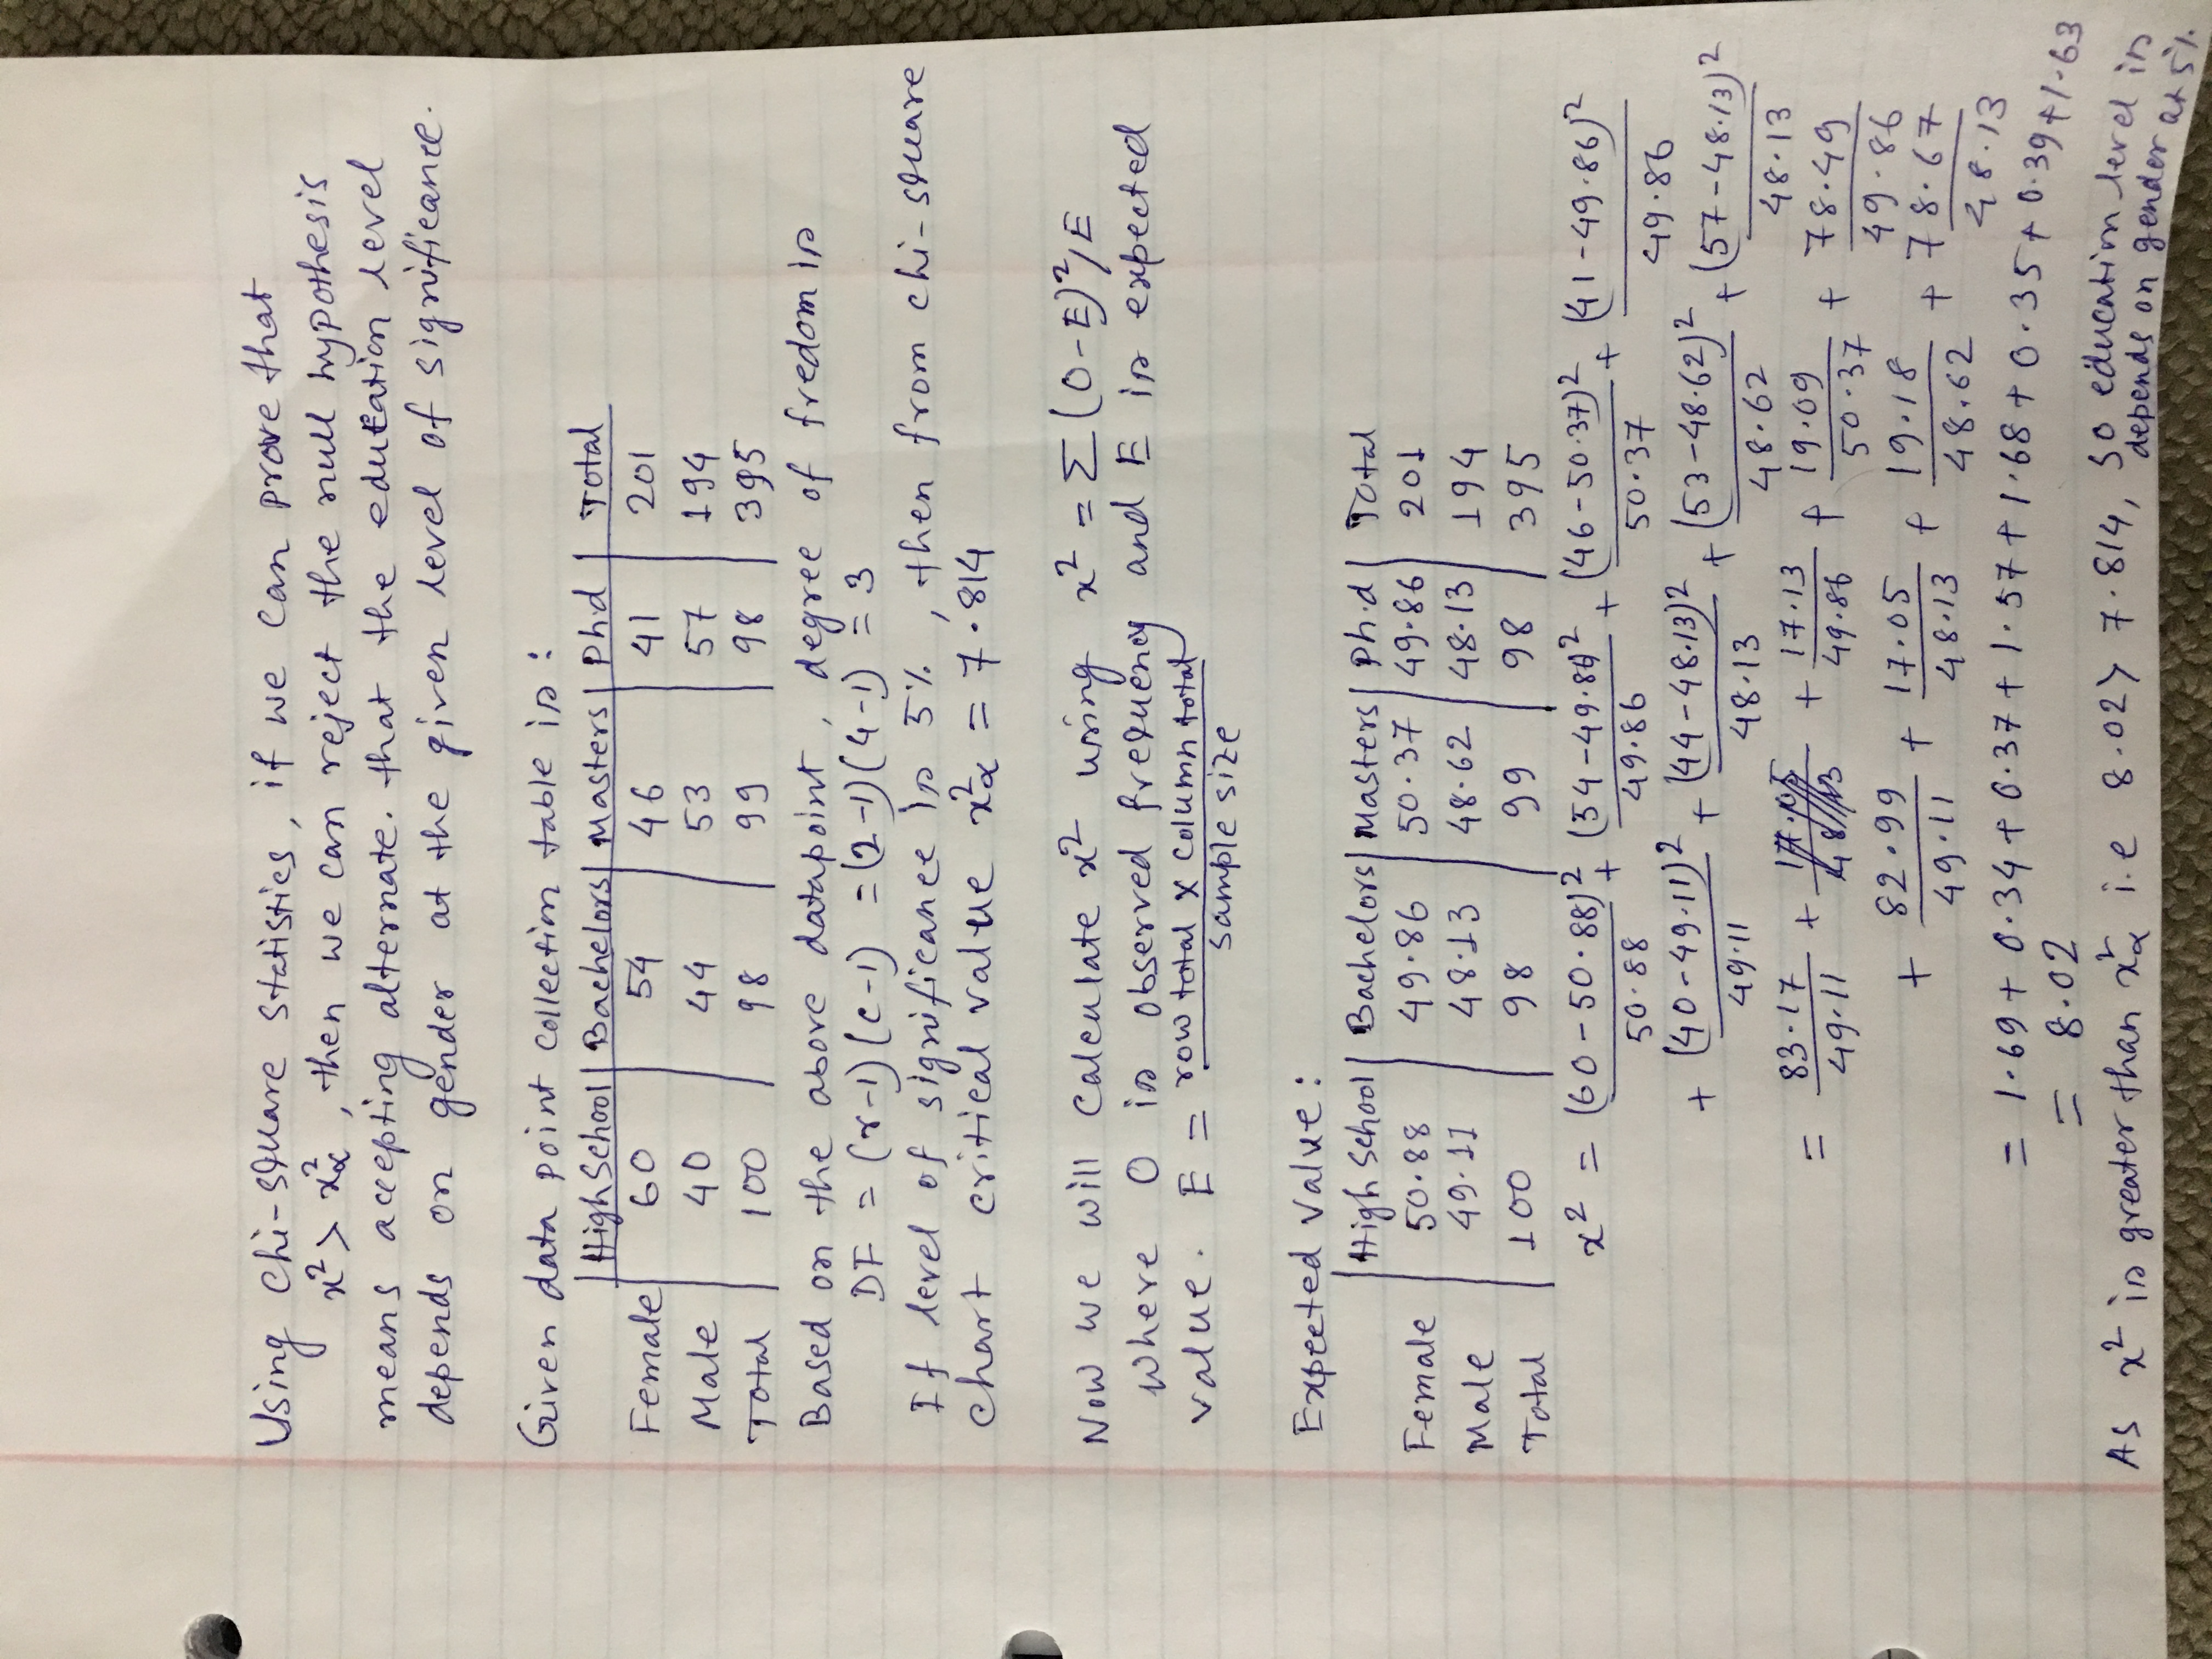 Using Chi-square statistics, if we can prove that
x² > x²α, then we can reject the null hypothesis
means accepting alternate. that the education level
depends on gender at the given level of significance.
Given data point collection table is :
High School | Bachelors | Masters | Ph.d | Total
Female 60 54 46 41 201
Male 40 44 53 57 194
Total 100 98 99 98 395
Based on the above datapoint, degree of fredom is
DF = (r-1)(c-1) = (2-1)(4-1) = 3
If level of significance is 5%, then from chi-square
chart critical value x²α = 7.814
Now we will calculate x² using x² = Σ(O-E)²/E
where O is observed frequency and E is expected
value. E = row total x column total
sample size
Expected Value :
High School | Bachelors | Masters | Ph.d | Total
Female 50.88 49.86 50.37 49.86 201
Male 49.11 48.13 48.62 48.13 194
Total 100 98 99 98 395
x² = (60-50.88)² + (54-49.86)² + (46-50.37)² + (41-49.86)²
50.88 49.86 50.37 49.86
+ (40-49.11)² + (44-48.13)² + (53-48.62)² + (57-48.13)²
49.11 48.13 48.62 48.13
= 83.17 + + 17.13 + 19.09 + 78.49
49.11 49.86 50.37 49.86
+ 82.99 + 17.05 + 19.18 + 78.67
49.11 48.13 48.62 48.13
= 1.69 + 0.34 + 0.37 + 1.57 + 1.68 + 0.35 + 0.39 + 1.63
= 8.02
As x² is greater than x²α i.e 8.02 > 7.814, so education level is
depends on gender at 5%.